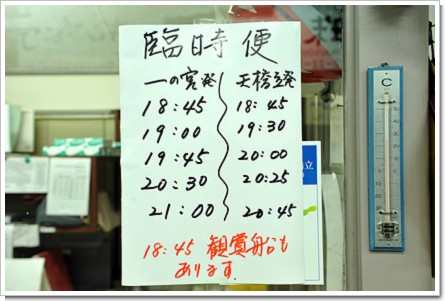 臨時便
一の宮発 天橋立発
18:45 18:45
19:00 19:30
19:45 20:00
20:30 20:25
21:00 20:45
18:45 観賞船も
あります.
C
立